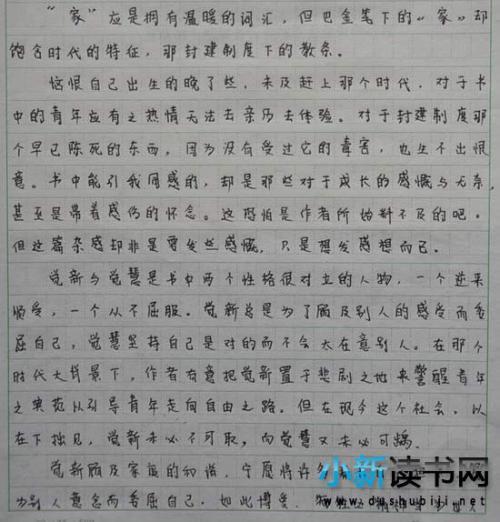 “家”应是拥有温暖的词汇，但巴金笔下的“家”却
饱含时代的特征，那封建制度下的教条。
恼恨自己出生的晚了些，未及赶上那个时代，对于书
中的青年应有之热情无法去亲历去体验。对于封建制度那
个早已陈死的东西，因为没有受过它的毒害，也生不出恨
意。书中能引我同感的，却是那些对于成长的感慨与无奈，
甚至是带着感伤的怀念。这恐怕是作者所始料不及的吧。
但这篇杂感却非是要发些感慨，只是想发感想而已。
觉新与觉慧是书中两个性格很对立的人物，一个逆来
顺受，一个从不屈服。觉新总是为了顾及别人的感受而委
屈自己，觉慧坚持自己是对的而不会太在意别人。在那个
时代大背景下，作者有意把觉新置于悲剧之地来警醒青年
之典范以引导青年走向自由之路。但在现今这个社会，以
在下拙见，觉新未必不可取，而觉慧又未必可嘱。
觉新顾及家庭的和谐，宁愿将许
为别人意念而委屈自己，如此博爱，
小新读书网
www.dushubiji.net